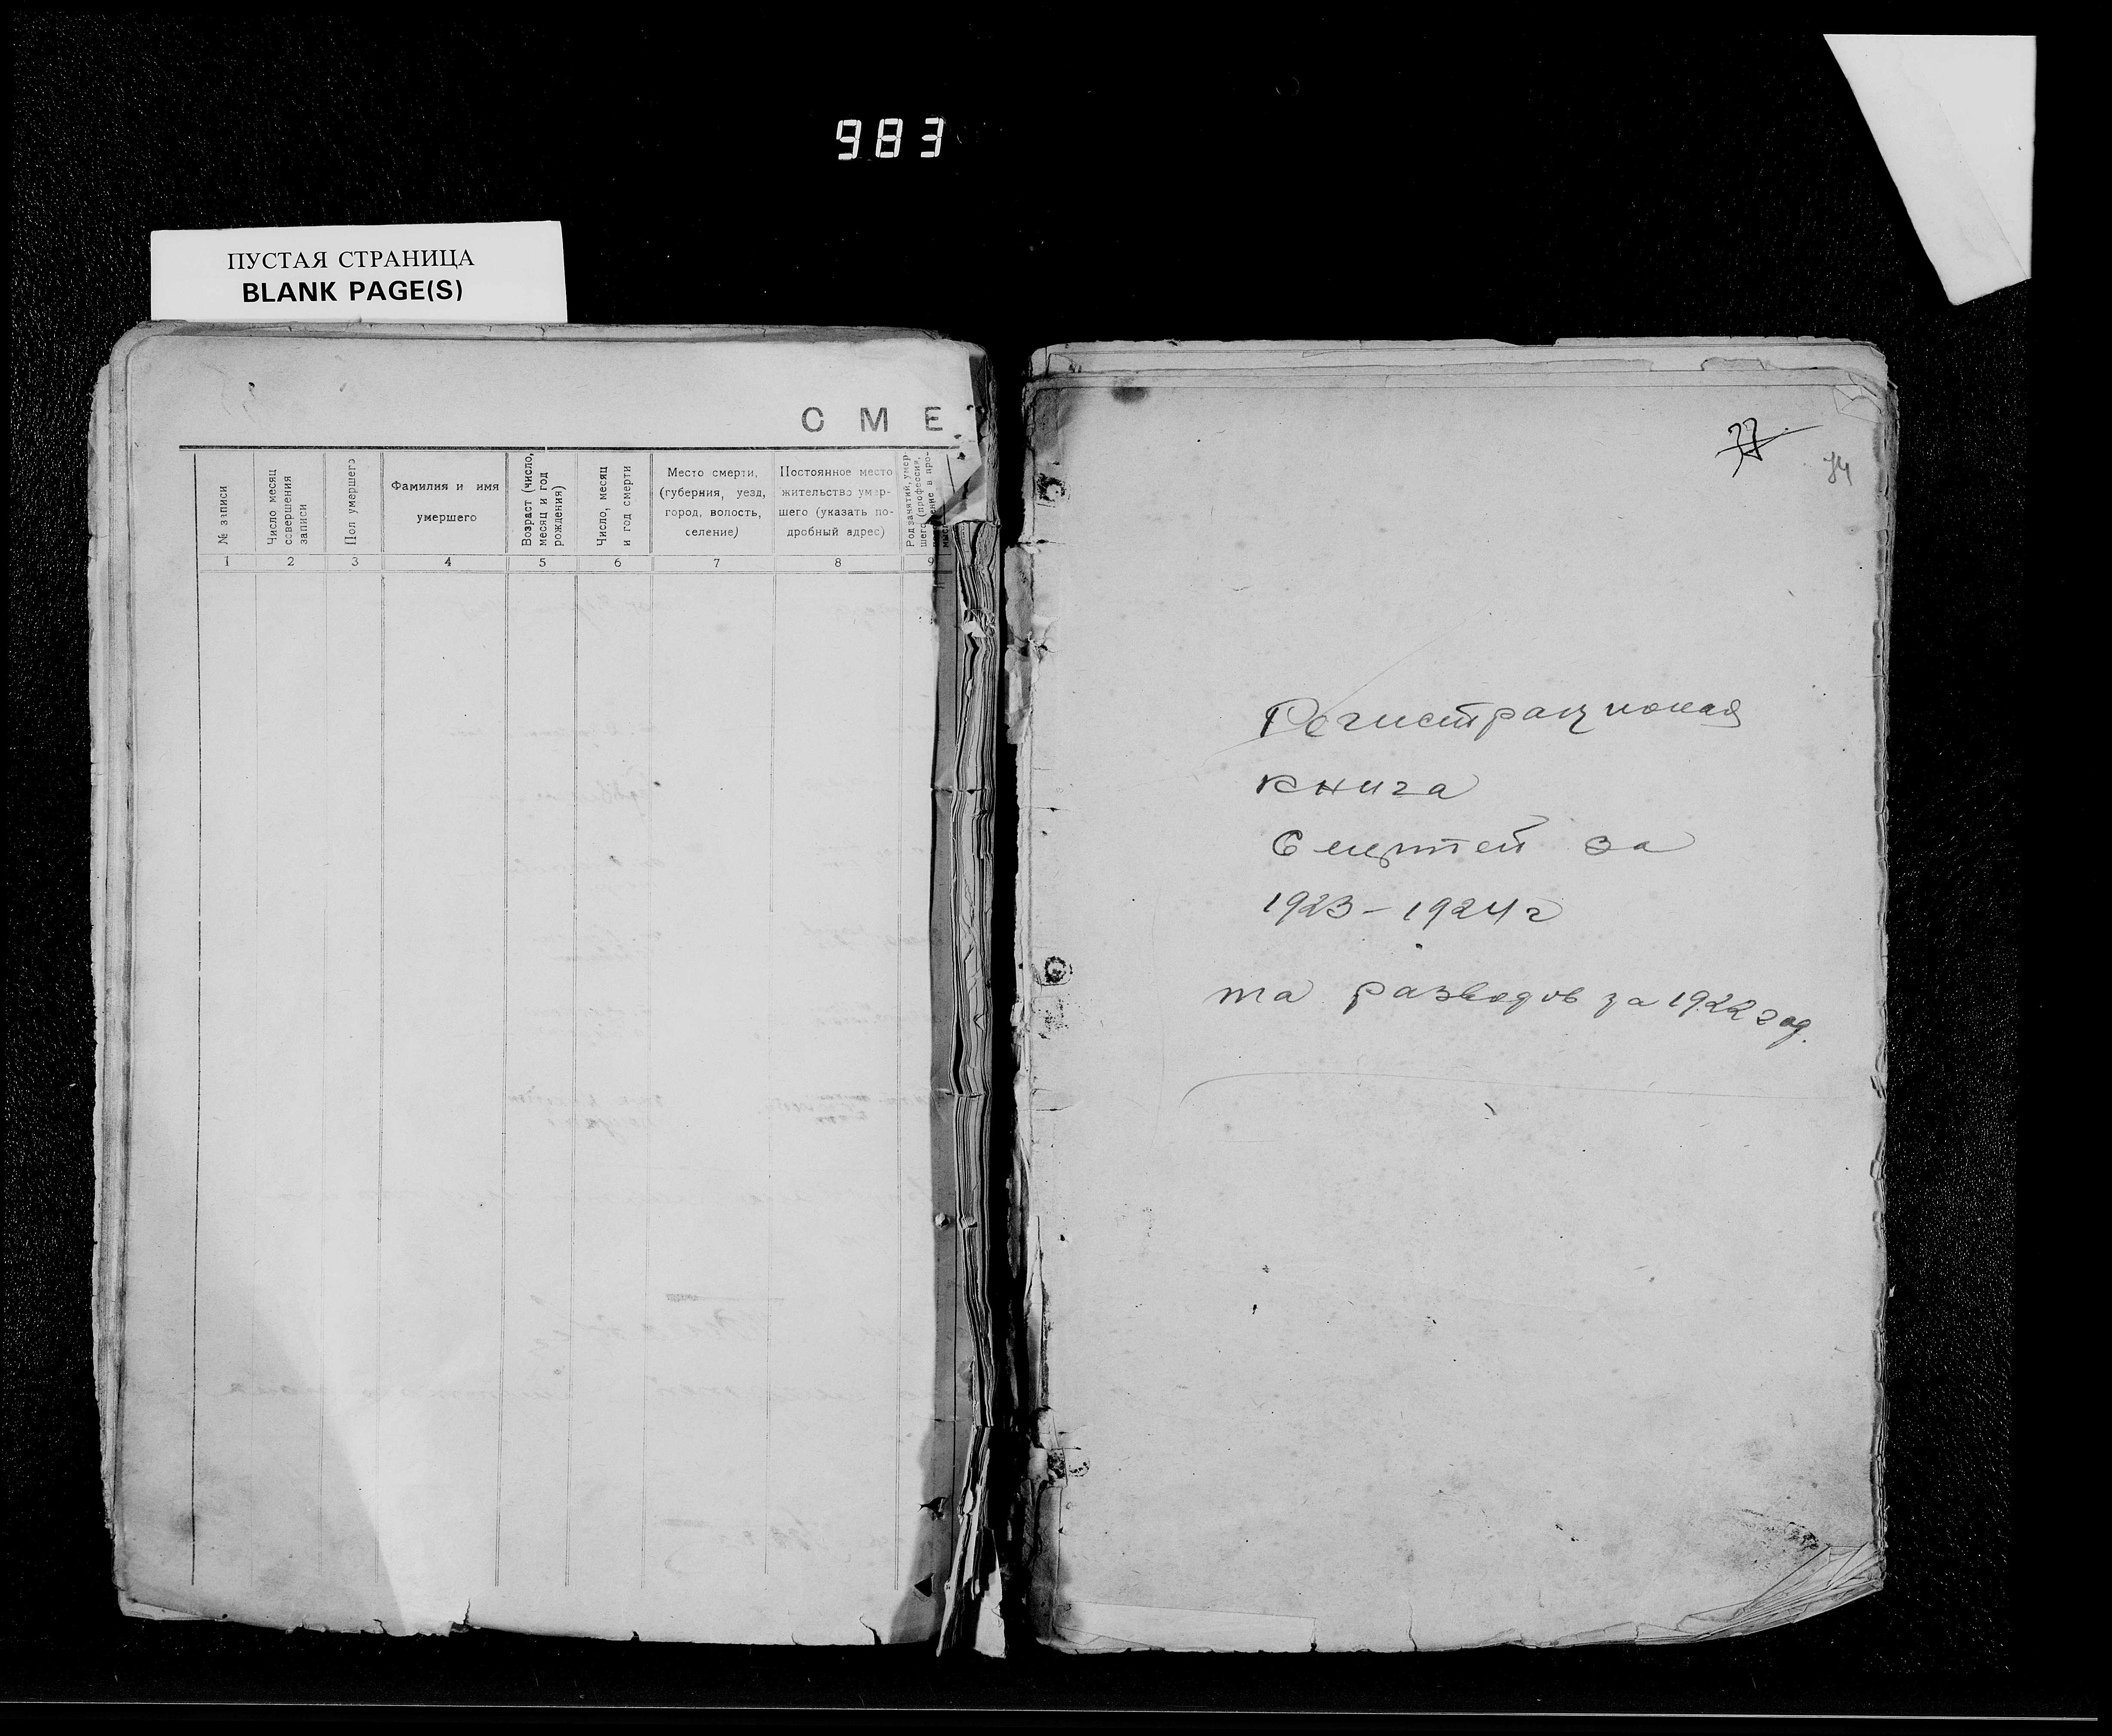 983
ПУСТАЯ СТРАНИЦА
BLANK PAGE(S)
СМЕ
№ записи
Число месяц
совершения
записи
Пол умершего
Фамилия и имя
умершего
Возраст (число,
месяц и год
рождения)
Число, месяц
и год смерти
Место смерти,
(губерния, уезд,
город, волость,
селение)
Постоянное место
жительство умер-
шего (указать по-
дробный адрес)
Род занятий, умер-
шего (профессия,
1 2 3 4 5 6 7 8 9
74
Регистрационая
книга
Смертей за
1923-1924 г
та разводов за 1922 год.